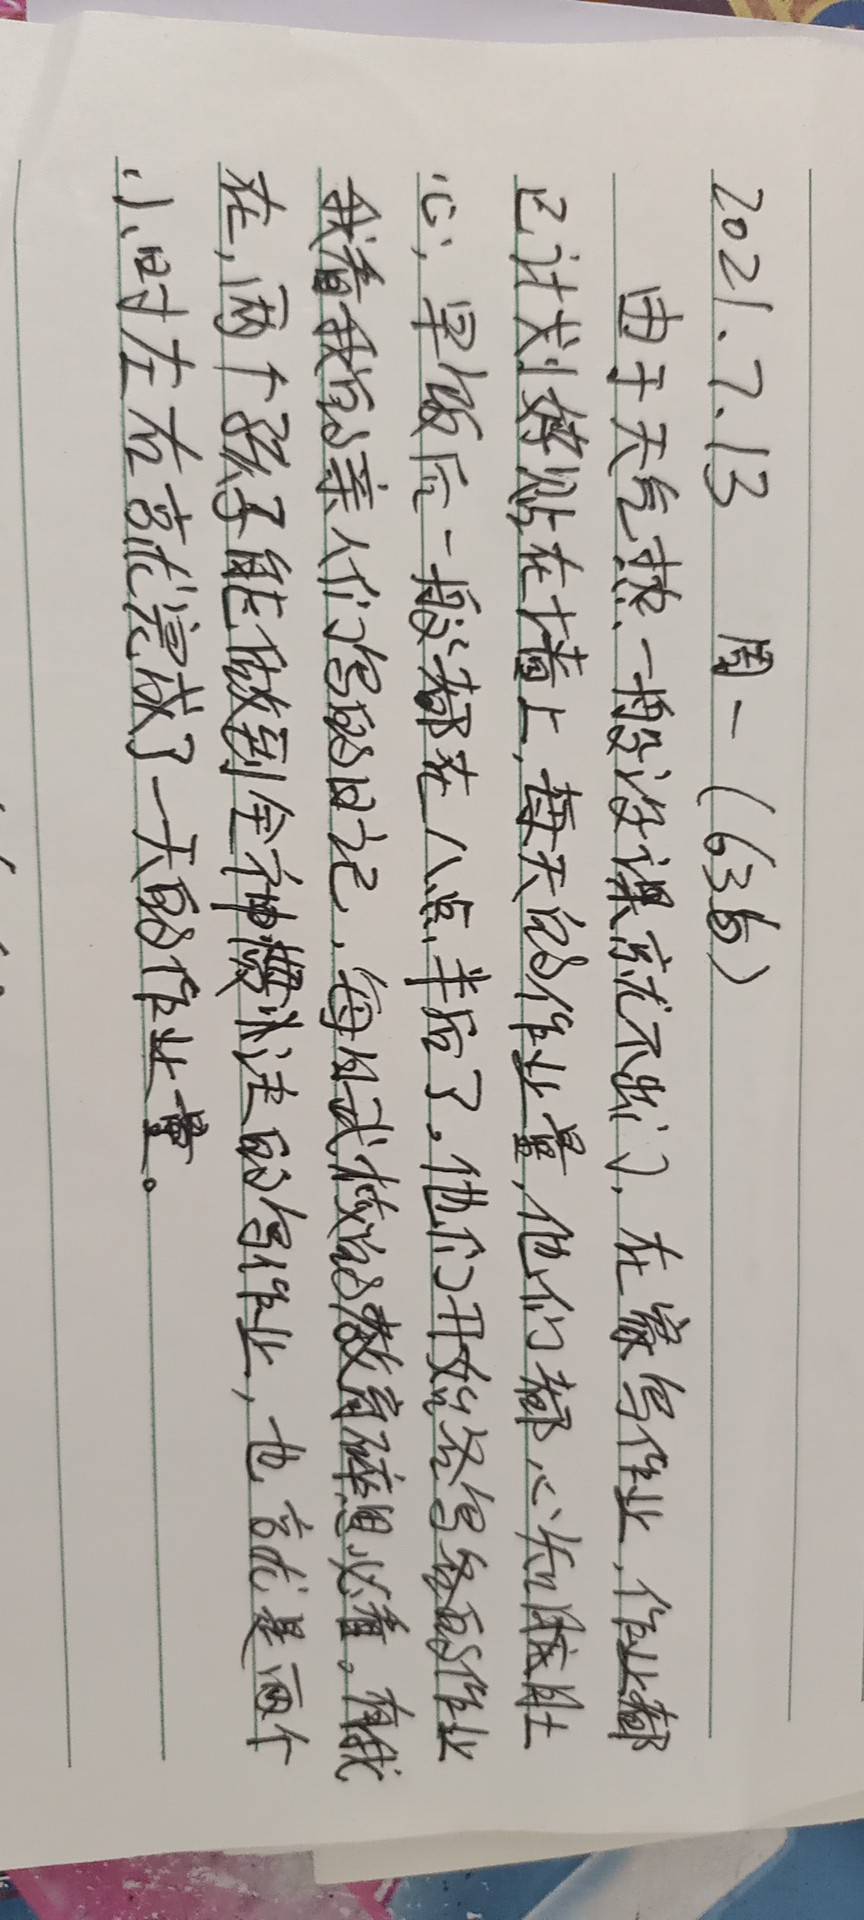 2021.7.13 周一(636)
由于天气热,一般没课就不出门,在家写作业,作业都
已计划好贴在墙上,每天的作业量,他们都心知肚
心,早饭后一般都在八点半后了,他们开始各写各的作业
我看我的亲人们写的日记,每日武校的教育碎思必看。有我
在,两个孩子能做到全神灌注的写作业,也就是两个
小时左右就完成了一天的作业量。